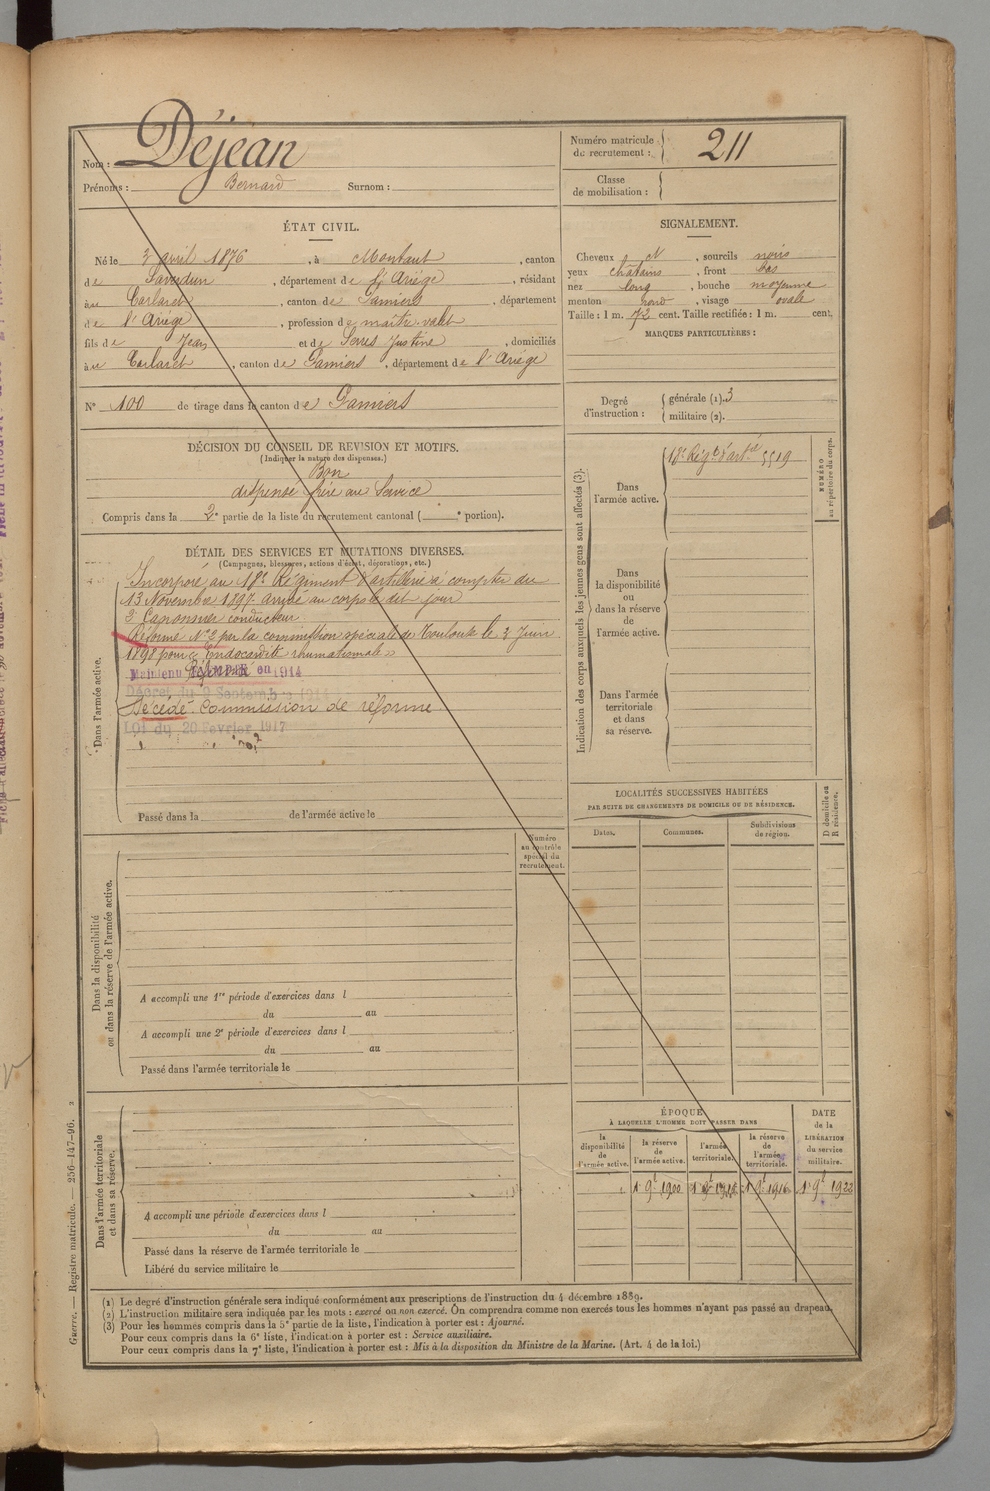 Nom : Déjean
Prénoms : Bernard Surnom :
Numéro matricule
de recrutement : 211
Classe
de mobilisation :
ÉTAT CIVIL.
Né le 2 avril 1876, à Montaut, canton
de Saverdun, département de l'Ariège, résidant
à Carlaret, canton de Pamiers, département
de l'Ariège, profession de maître-valet
fils de Jean et de Serres Justine, domiciliés
à Carlaret, canton de Pamiers, département de l'Ariège
N° 100 de tirage dans le canton de Pamiers
SIGNALEMENT.
Cheveux et N, sourcils noirs
yeux châtains, front bas
nez long, bouche moyenne
menton rond, visage ovale
Taille : 1 m. 72 cent. Taille rectifiée : 1 m. cent.
MARQUES PARTICULIÈRES :
Degré
d'instruction :
générale (1). 3
militaire (2).
DÉCISION DU CONSEIL DE REVISION ET MOTIFS.
(Indiquer la nature des dispenses.)
Bon
dispensé frère au Service
Compris dans la 2e partie de la liste du recrutement cantonal ( e portion).
DÉTAIL DES SERVICES ET MUTATIONS DIVERSES.
(Campagnes, blessures, actions d'éclat, décorations, etc.)
Dans l'armée active.
Incorporé au 18e Régiment d'artillerie à compter du
13 Novembre 1897. Arrivé au corps le dit jour
2e Canonnier conducteur.
Réformé N° 2 par la commission spéciale de Toulouse le 3 Juin
1898 pour « Endocardite rhumatismale »
Maintenu Réformé en 1914
Décret du 9 Septembre 1914
Décédé. Commission de réforme
Loi du 20 Février 1917
Passé dans la de l'armée active le
Indication des corps auxquels les jeunes gens sont affectés (3).
Dans
l'armée active.
18e Régt d'artie 5519
NUMÉRO
au répertoire du corps.
Dans
la disponibilité
ou
dans la réserve
de
l'armée active.
Dans l'armée
territoriale
et dans
sa réserve.
LOCALITÉS SUCCESSIVES HABITÉES
PAR SUITE DE CHANGEMENTS DE DOMICILE OU DE RÉSIDENCE.
Dates.
Communes.
Subdivisions
de région.
D domicile ou
R résidence.
Dans la disponibilité
ou dans la réserve de l'armée active.
Numéro
au contrôle
spécial du
recrutement.
A accompli une 1re période d'exercices dans l
du au
A accompli une 2e période d'exercices dans l
du au
Passé dans l'armée territoriale le
Dans l'armée territoriale
et dans sa réserve.
A accompli une période d'exercices dans l
du au
Passé dans la réserve de l'armée territoriale le
Libéré du service militaire le
ÉPOQUE
À LAQUELLE L'HOMME DOIT PASSER DANS
la
disponibilité
de
l'armée active.
la réserve
de
l'armée active.
l'armée
territoriale.
la réserve
de
l'armée
territoriale.
DATE
de la
LIBÉRATION
du service
militaire.
1 9e 1900
1 9e 1916
1 9e 1922
Guerre. — Registre matricule. — 256-147-96. 2
(1) Le degré d'instruction générale sera indiqué conformément aux prescriptions de l'instruction du 4 décembre 1889.
(2) L'instruction militaire sera indiquée par les mots : exercé ou non exercé. On comprendra comme non exercés tous les hommes n'ayant pas passé au drapeau.
(3) Pour les hommes compris dans la 5e partie de la liste, l'indication à porter est : Ajourné.
Pour ceux compris dans la 6e liste, l'indication à porter est : Service auxiliaire.
Pour ceux compris dans la 7e liste, l'indication à porter est : Mis à la disposition du Ministre de la Marine. (Art. 4 de la loi.)